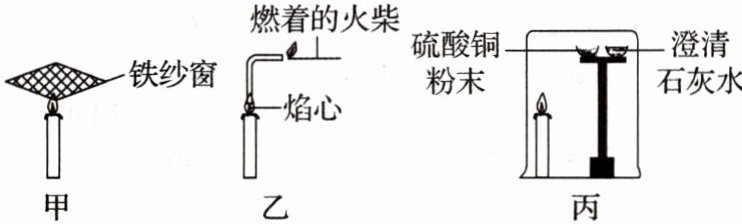 燃着的火柴
铁纱窗
焰心
硫酸铜
粉末
澄清
石灰水
甲
乙
丙